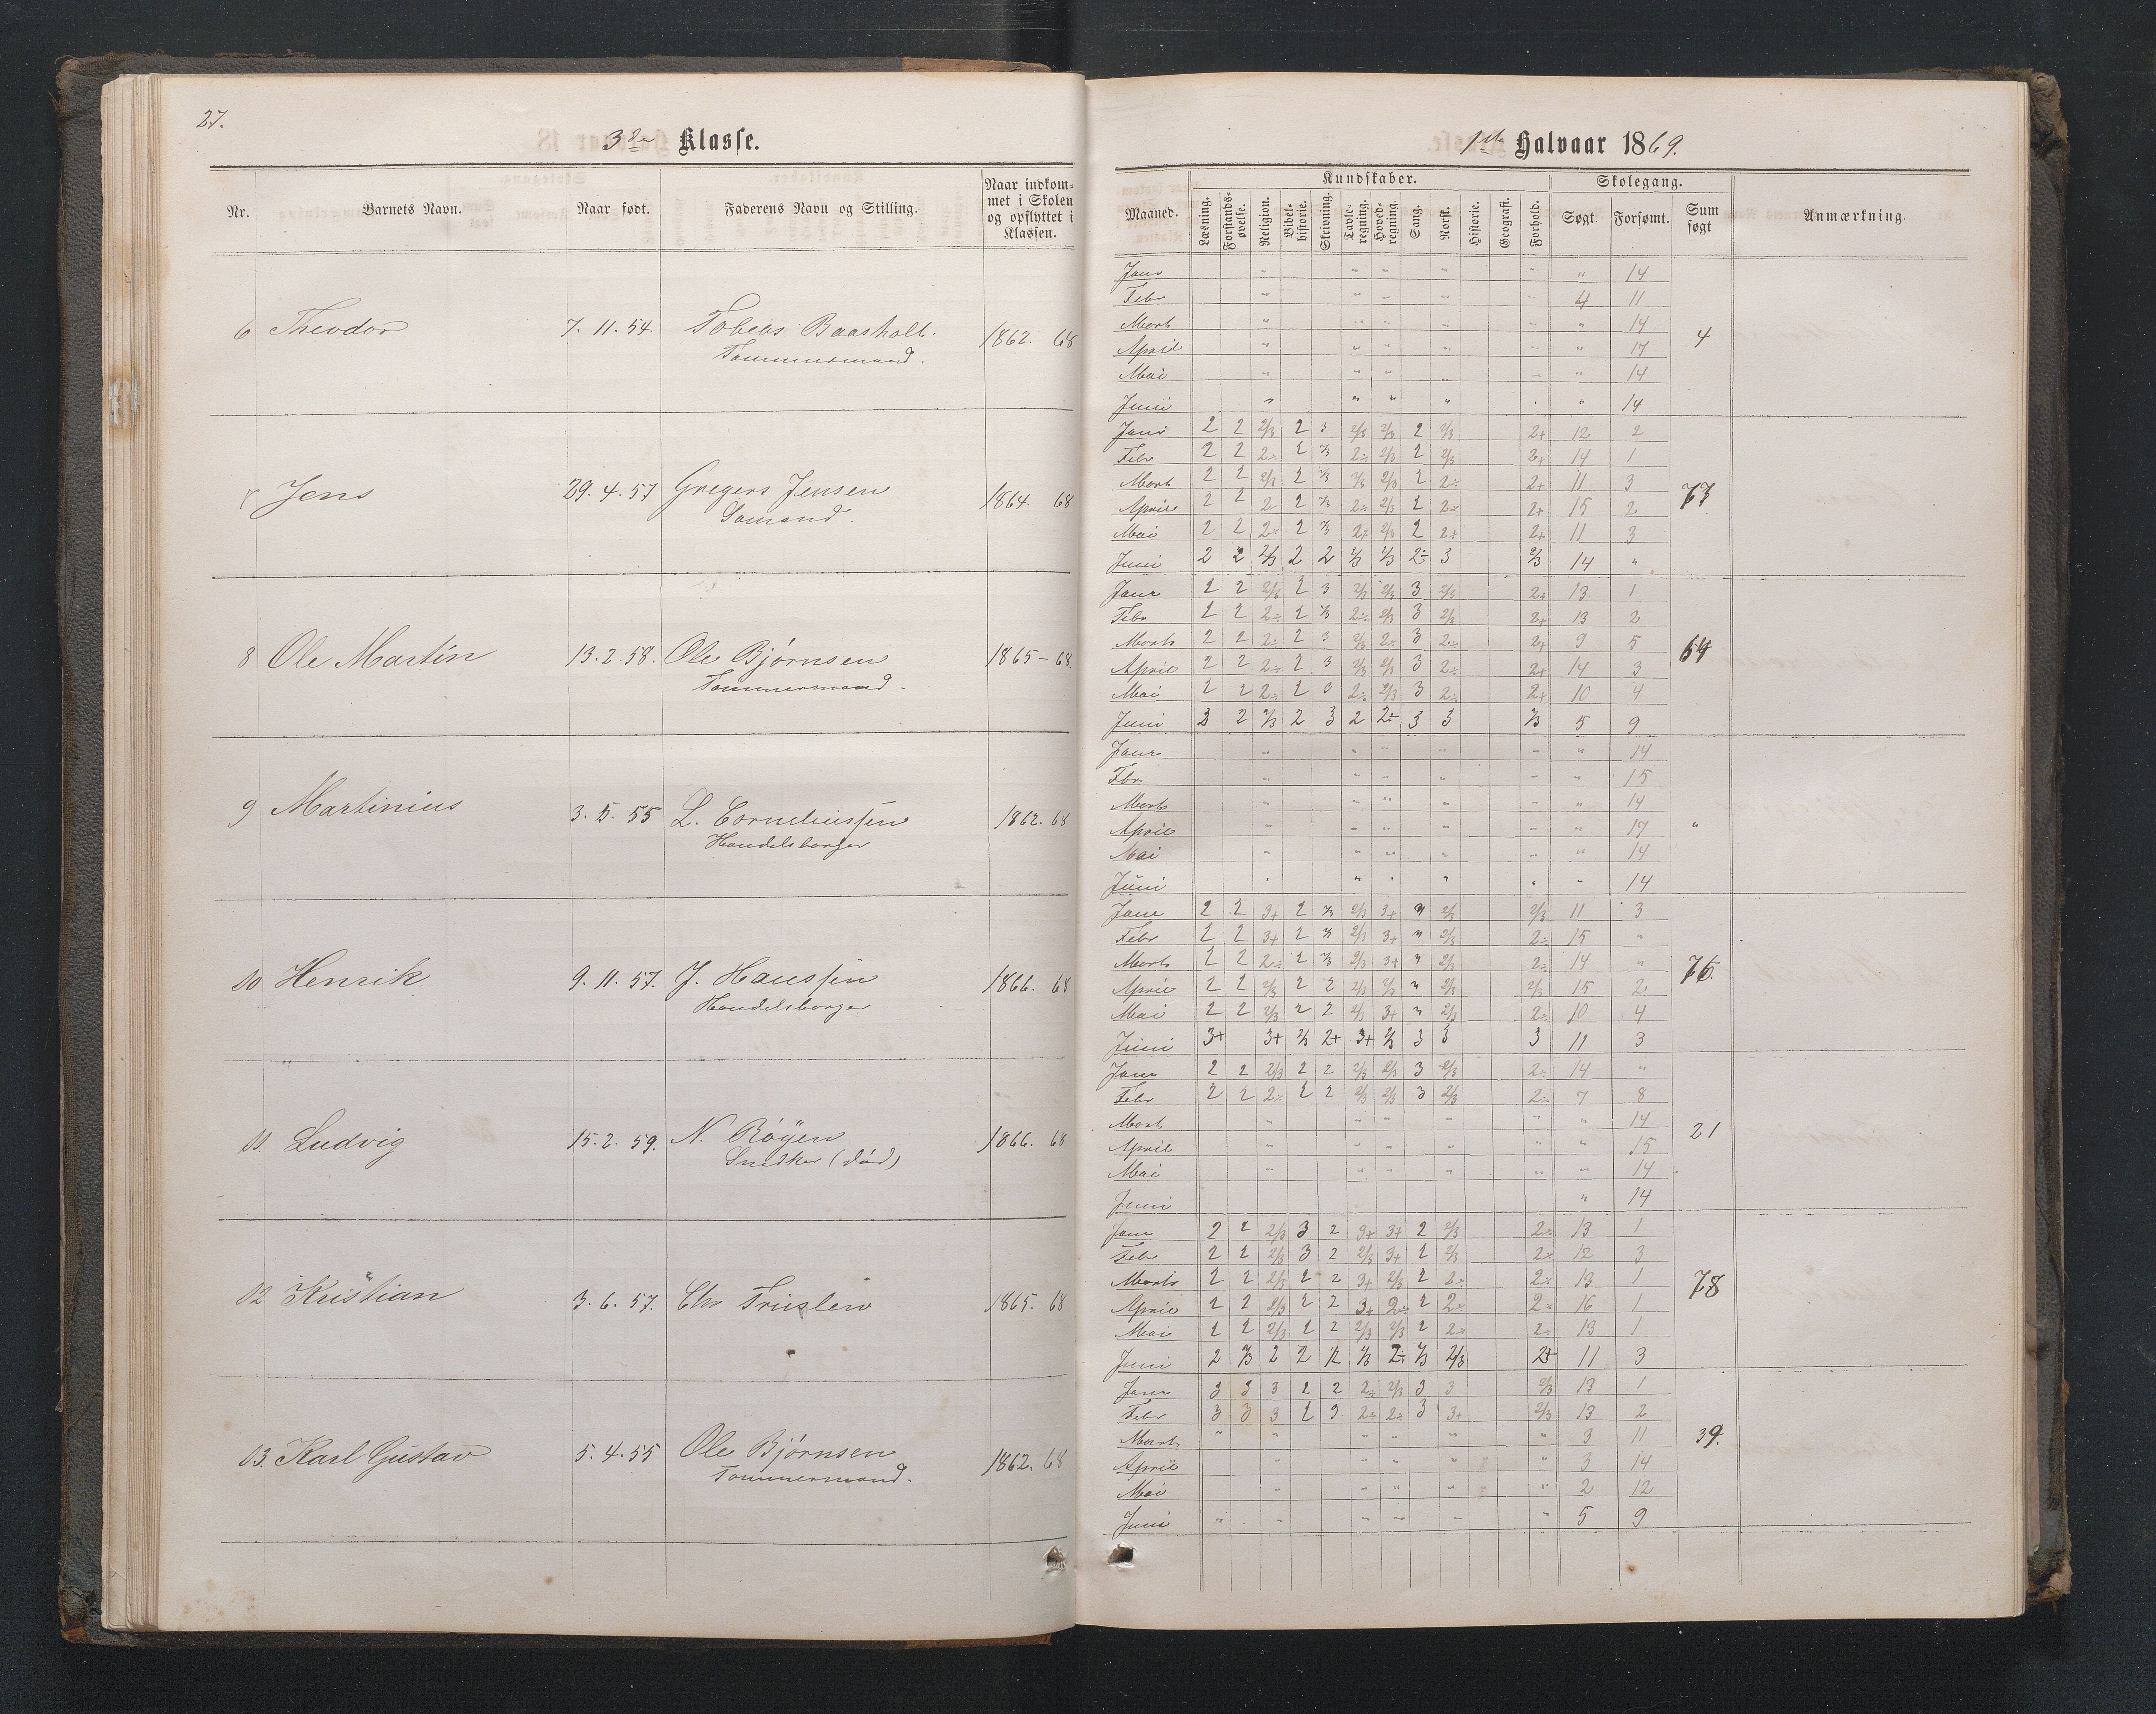 27.
3die Klasse.
Nr. Barnets Navn. Naar født. Faderens Navn og Stilling. Naar indkommet i Skolen og opflyttet i Klassen.
6 Theodor 7. 11. 54. Tobias Baasholt. 1862. 68
Tømmermand.
7 Jens 29. 4. 57 Gregers Jensen 1864. 68
Sømand.
8 Ole Martin 13. 2. 58. Ole Bjørnsen 1865 - 68
Tømmermand.
9 Martinius 3. 5. 55 L. Corneliussen 1862. 68
Handelsborger
10 Henrik 9. 11. 57. J. Hanssen 1866. 68
Handelsborger
11 Ludvig 15. 2. 59. N. Röÿen 1866. 68
Snedker (død)
12 Kristian 3. 6. 57. Chr 1865. 68
13. Karl Gustav 5. 4. 55 Ole Bjørnsen 1862. 68
Tømmermand.
1ste Halvaar 1869.
Kundskaber. Skolegang.
Maaned. Læsning. Forstandsøvelse. Religion. Bibelhistorie. Skrivning. Tavleregning. Hovedregning. Sang. Norsk. Historie. Geografi. Forhold. Søgt. Forsømt. Sum søgt Anmærkning.
Janr " " " " " " 14
Febr " " " " " 4 11
Marts " " " " " " 14
4
April " " " " " " 17
Mai " " " " " " 14
Juni " " " " " " 14
Janr 2 2 2/3 2 3 2/3 2/3 2 2/3 2+ 12 2
Febr 2 2 2÷ 2 2/3 2÷ 2/3 2 2/3 2+ 14 1
Marts 2 2 2/3 2 2/3 2/3 2/3 2 2÷ 2+ 11 3
73
April 2 2 2 2 2/3 2÷ 2/3 2 2÷ 2+ 15 2
Mai 2 2 2÷ 2 2/3 2÷ 2/3 2 2÷ 2+ 11 3
Juni 2 2 2/3 2 2 2/3 2/3 2÷ 3 2/3 14 "
Janr 2 2 2/3 2 3 2/3 2/3 3 2/3 2+ 13 1
Febr 2 2 2÷ 2 2/3 2÷ 2/3 3 2/3 2+ 13 2
Marts 2 2 2÷ 2 3 2/3 2÷ 3 2÷ 2+ 9 5
64
April 2 2 2÷ 2 3 2/3 2/3 3 2÷ 2+ 14 3
Mai 2 2 2÷ 2 3 2÷ 2/3 3 2÷ 2+ 10 4
Juni 3 2 2/3 2 3 2 2÷ 3 3 2/3 5 9
Janr " " " " " " 14
Fbr " " " " " " 15
Marts " " " " " " 14
April " " " " " " 17
"
Mai " " " " " " 14
Juni " " " " " " 14
Janr 2 2 3+ 2 2/3 2/3 3+ " 2/3 2/3 11 3
Febr 2 2 3+ 2 2/3 2/3 3+ " 2/3 2÷ 15 "
Marts 2 2 2÷ 2 2/3 2/3 3+ " 2/3 2÷ 14 "
76.
April 2 2 2/3 2 2 2/3 2/3 " 2/3 2/3 15 2
Mai 2 2 2/3 2 2 2/3 3+ " 2/3 2÷ 10 4
Juni 3+ 3+ 2/3 2+ 3+ 2/3 3 3 3 11 3
Janr 2 2 2/3 2 2 2/3 2/3 3 2/3 2÷ 14 "
Febr 2 2 2÷ 2 2 2/3 2/3 3 2/3 2÷ 7 8
Marts " " " " " " 14
21
April " " " " " " 15
Mai " " " " " " 14
Juni " 14
Janr 2 2 2/3 3 2 3+ 3+ 2 2/3 2÷ 13 1
Febr 2 2 2/3 3 2 2/3 3+ 2 2/3 2÷ 12 3
Marts 2 2 2/3 2 2 3+ 2/3 2 2÷ 2÷ 13 1
78
April 2 2 2/3 2 2 3+ 2÷ 2 2÷ 2÷ 16 1
Mai 2 2 2/3 2 2 2/3 2/3 2 2÷ 2÷ 13 1
Juni 2 2/3 2 2 1/2 2/3 2÷ 2/3 2/3 2+ 11 3
Janr 3 3 3 2 2 2÷ 2/3 3 3 2/3 13 1
Febr 3 3 3 2 3 2÷ 2÷ 3 3+ 2/3 13 2
Marts " " " " " " 3 11
39.
April " " " " " 3 14
Mai " " " " " 2 12
Juni " " " " " " 5 9